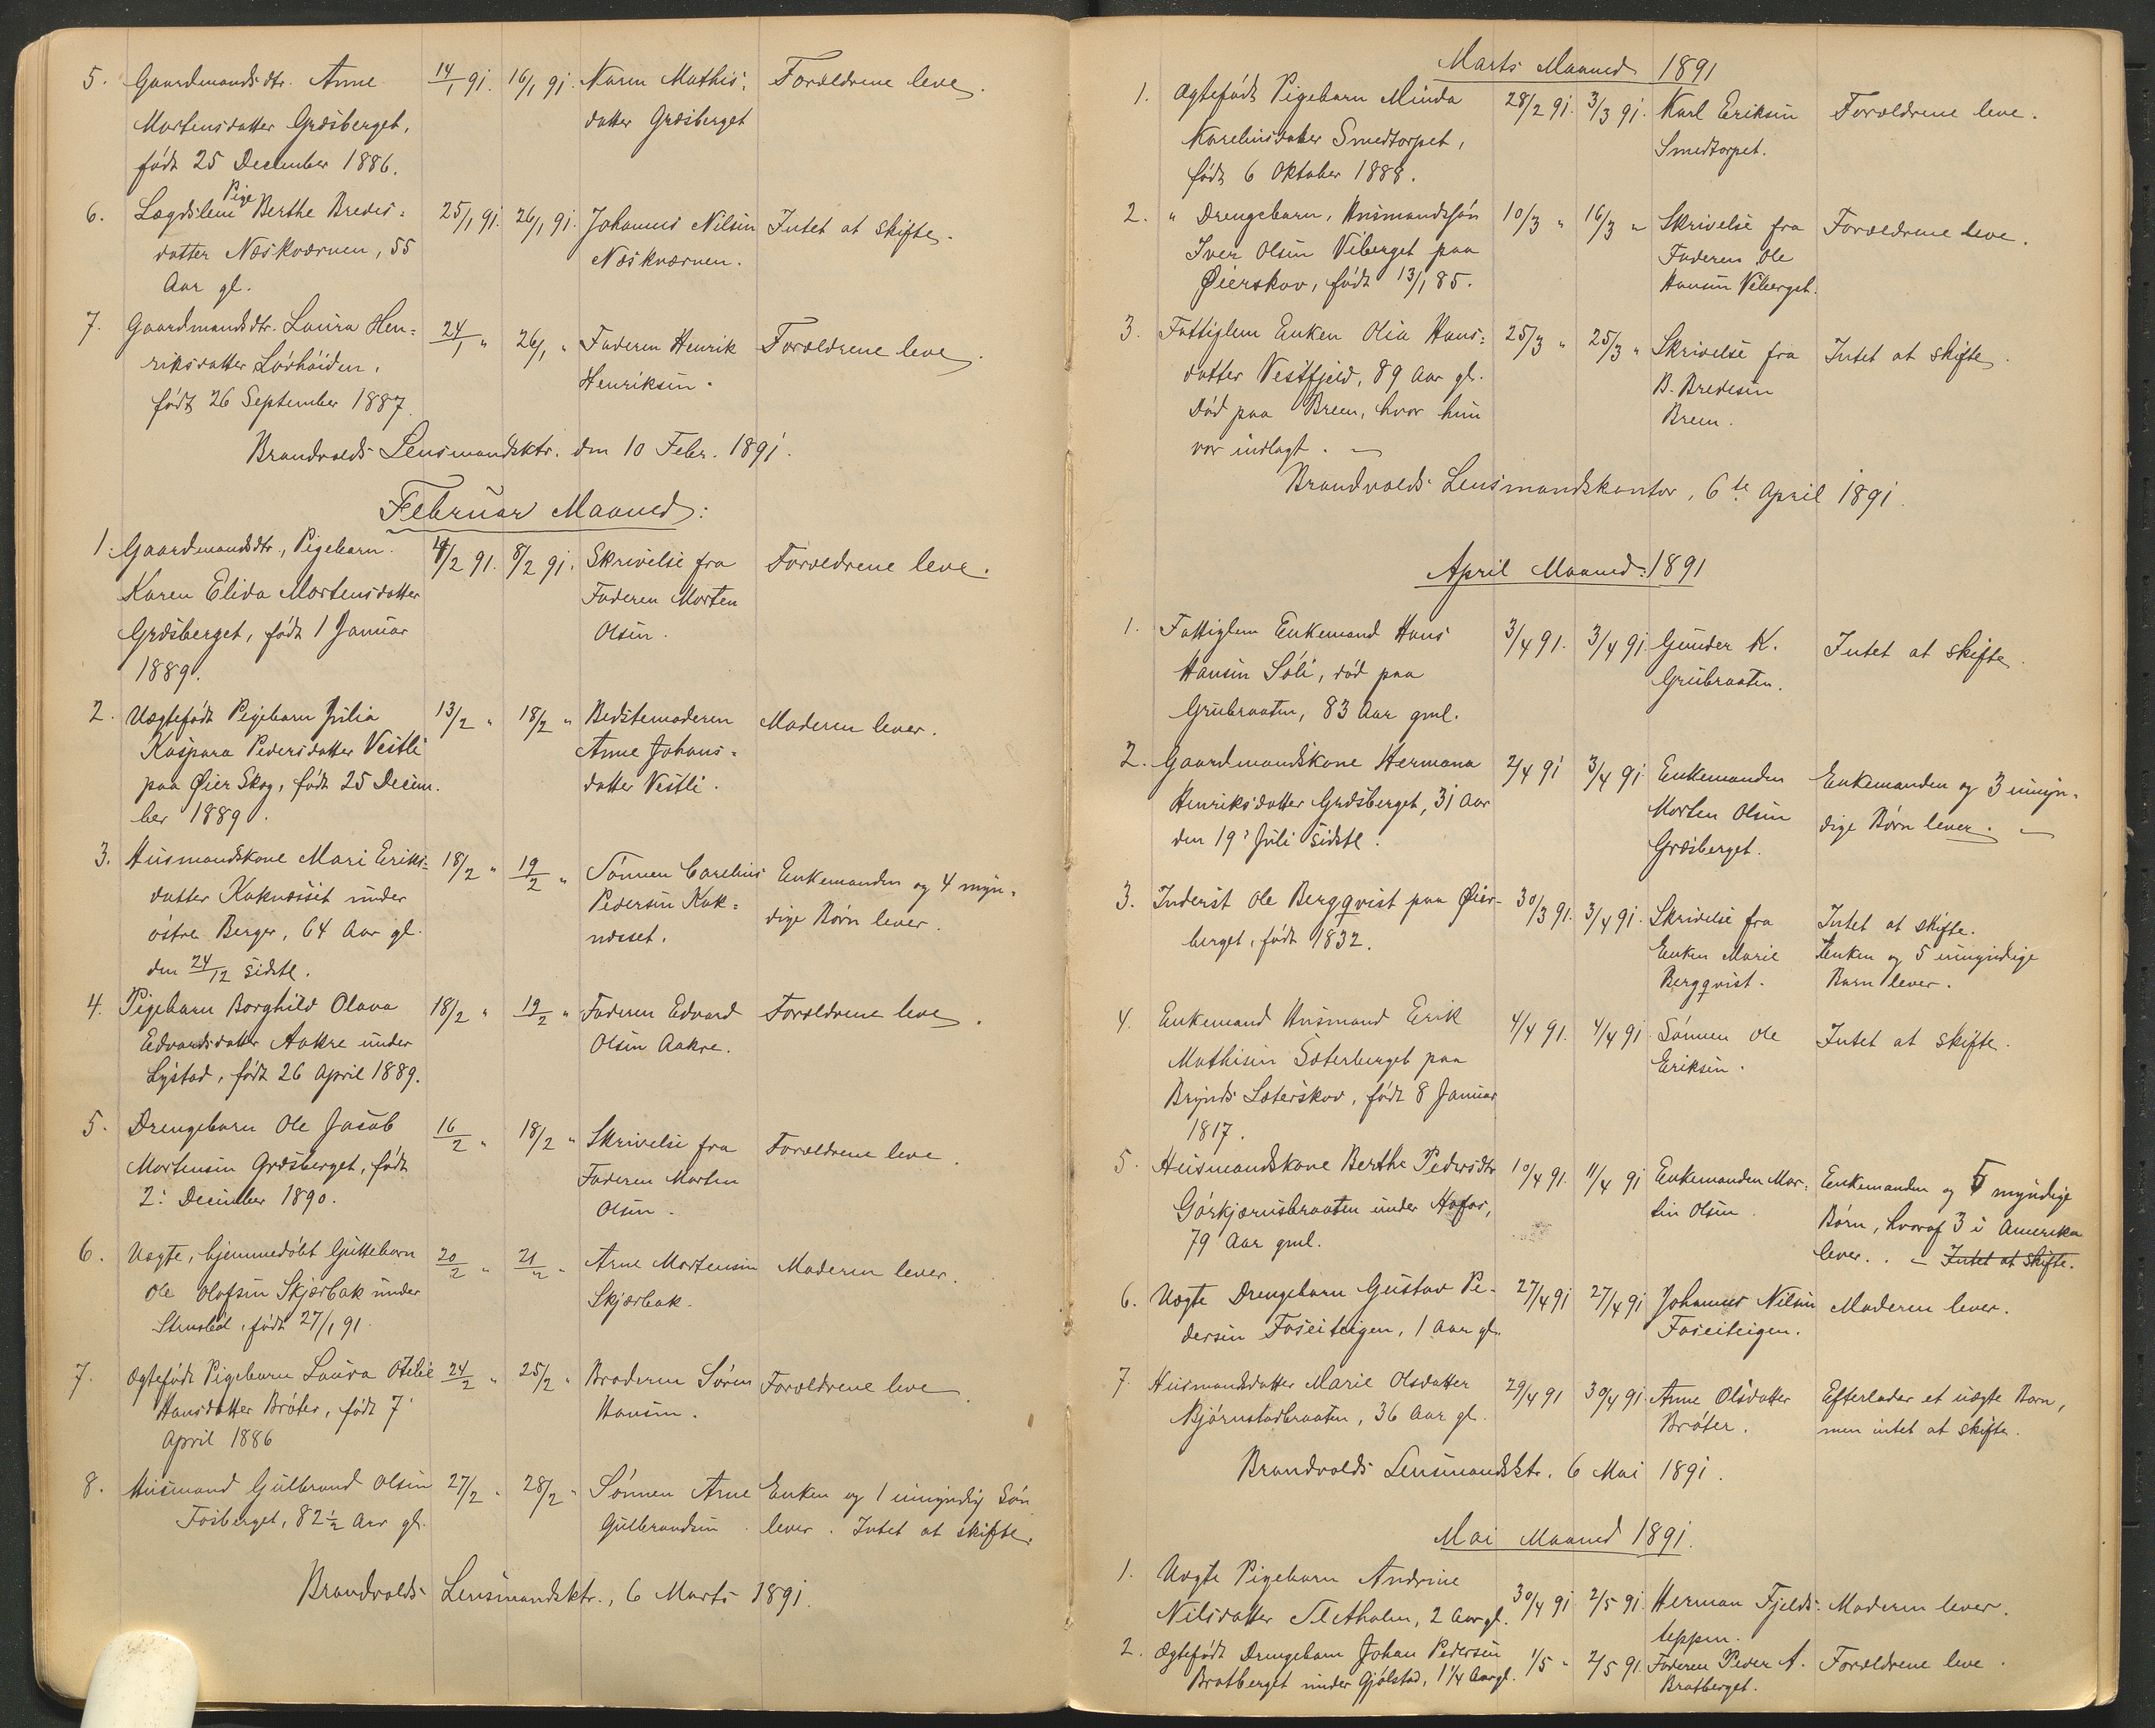 5. Gaardmandsdtr. Anne 14/1 91. 16/1 91. Karen Mathis: Forældrene leve.
Mortensdatter Græsberget, datter Græsberget
født 25 December 1886.
Pige
6. Lægdslem Berthe Bredes: 25/1 91. 26/1 91. Johannes Nilsen Intet at skifte.
datter Næskværnen, 55 Næskværnen.
Aar gl.
7. Gaardmandsdtr. Laura Hen: 24/1 " 26/1 " Faderen Henrik Forældrene leve.
riksdatter Lövhöiden, Henriksen.
født 26 September 1887.
Brandvolds Lensmandsktr. den 10 Febr. 1891.
Februar Maaned:
1. Gaardmandsdtr., Pigebarn /2 91. 8/2 91. Skrivelse fra Forældrene leve.
Karen Elida Mortensdatter Faderen Morten
Græsberget, født 1 Januar Olsen.
1889.
2. Uægtefødt Pigebarn Julia 13/2 " 18/2 " Bedstemoderen Moderen lever.
Kaspara Pedersdatter Vestli Anne Johans=
paa Øier Skog, født 25 Decem. datter Vestli.
ber 1889.
3. Husmandskone Mari Eriks= 18/2 " 19/2 " Sønnen Carelius Enkemanden og 4 myn=
datter Kuknæsset under Pedersen Kuk= dige Børn lever.
østre Berger, 64 Aar gl. næsset.
den 24/12 sidstl.
4. Pigebarn Borghild Olava 18/2 " 19/2 " Faderen Edvard Forældrene leve.
Edvardsdatter Aakre under Olsen Aakre.
Lystad, født 26 April 1889.
5. Drengebarn Ole Jacob 16/2 " 18/2 " Skrivelse fra Forældrene leve.
Mortensen Græsberget, født Faderen Morten
2: December 1890. Olsen.
6. Uægte, hjemmedøbt Guttebarn 20/2 " 21/2 " Arne Mortensen Moderen lever.
Ole Olofsen Skjærbak under Skjærbak.
født 27/1 91.
7. Ægtefødt Pigebarn Laura Otilie 24/2 " 25/2 " Broderen Søren Forældrene leve
Hansdatter Bråter, født 7 Hansen.
April 1886
8. Husmand Gulbrand Olsen 27/2 " 28/2 " Sønnen Arne Enken og 1 umyndig Søn
Fosberget, 82½ Aar gl. Gulbrandsen. lever. Intet at skifte.
Brandvolds Lensmandsktr., 6 Marts 1891.
Marts Maaned 1891
1. Ægtefødt Pigebarn Minda 28/2 91. 3/3 91. Karl Eriksen Forældrene leve.
Karelinsdatter Smedtorpet, Smedtorpet.
født 6 Oktober 1888.
2. " Drengebarn, Husmandssøn 10/3 " 16/3 " Skrivelse fra Forældrene leve.
Iver Olsen Viberget paa Faderen Ole
Øierskov, født 13/1 85. Hansen Viberget.
3. Fattiglem Enken Olia Hans: 25/3 " 25/3 " Skrivelse fra Intet at skifte.
datter Vestfjeld, 89 Aar gl. B. Bredesen
Død paa Breen, hvor hun Breen.
var indlagt.
Brandvolds Lensmandskontor, 6te April 1891.
April Maaned: 1891
1. Fattiglem Enkemand Hans 3/4 91. 3/4 91. Gunder K. Intet at skifte.
Hansen Söli, död paa Grubraaten.
Grubraaten, 83 Aar gml.
2. Gaardmandskone Hermana 2/4 91 3/4 91. Enkemanden Enkemanden og 3 umyn=
Henriksdatter Græsberget, 31 Aar Morten Olsen dige Børn lever.
den 19: Juli sidstl. Græsberget.
3. Inderst Ole Bergqvist paa Øier- 30/3 91. 3/4 91. Skrivelse fra Intet at skifte.
berget, født 1832. Enken Marie Enken og 5 umyndige
Bergqvist. Barn lever.
4. Enkemand Husmand Erik 4/4 91. 4/4 91. Sønnen Ole Intet at skifte.
Mathisen Sæterberget paa Eriksen.
Brynds Sæterskov, født 8 Januar
1817.
5. Husmandskone Berthe Pedersdtr 10/4 91. 11/4 91 Enkemanden Mar: Enkemanden og 5 myndige
Gørkjærnsbraaten under Hofos, tin Olsen Børn, hvoraf 3 i Amerika
79 Aar gml. lever. . - Intet at skifte.
6. Uægte Drengebarn Gustav Pe- 27/4 91 27/4 91 Johannes Nilsen Moderen lever.
dersen Foseiteigen, 1 Aar gl. Foseiteigen.
7. Husmandsdatter Marie Olsdatter 29/4 91 30/4 91. Anne Olsdatter Efterlader et uægte Barn,
Bjørnstadbraaten, 36 Aar gl. Bråter. men intet at skifte.
Brandvolds Lensmandsktr. 6 Mai 1891.
Mai Maaned 1891.
1. Uægte Pigebarn Andrine
Nilsdatter Sletholen, 2 Aar gl. 30/4 91 2/5 91. Herman Fjelds: Moderen lever.
teppen.
2. Ægtefødt Drengebarn Johan Pedersen 1/5 " 2/5 91. Faderen Peder A. Forældrene leve.
Bratberget under Gjølstad, 1¼ Aar gl. Bratberget.